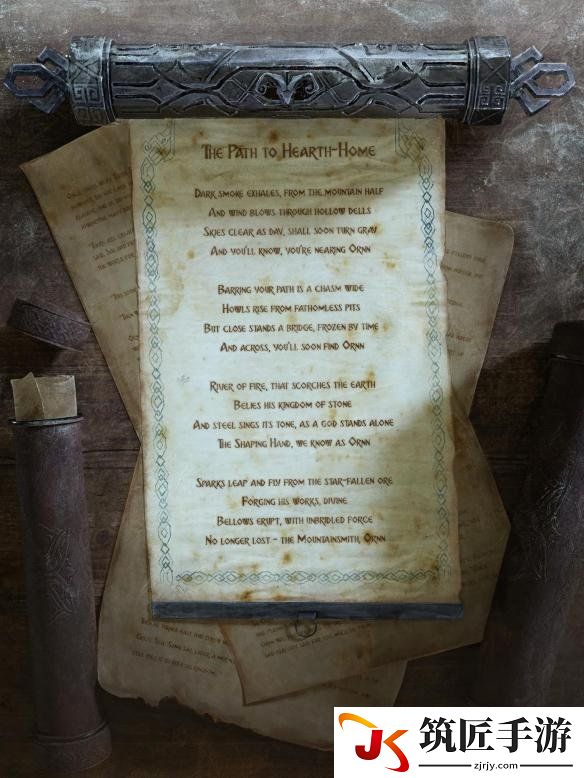 The Path to Hearth-Home
Dark smoke exhales, from the mountain half
And wind blows through hollow dells
Skies clear as day, shall soon turn gray
And you'll know, you're nearing Ornn
Barring your path is a chasm wide
Howls rise from fathomless pits
But close stands a bridge, frozen by time
And across, you'll soon find Ornn
River of fire, that scorches the earth
Belies his kingdom of stone
And steel sings its tone, as a god stands alone
The Shaping Hand, we know as Ornn
Sparks leap and fly from the star-fallen ore
Forging his works, divine
Bellows erupt, with unbridled force
No longer lost – the Mountainsmith, Ornn
筑匠手游
zjrjy.com